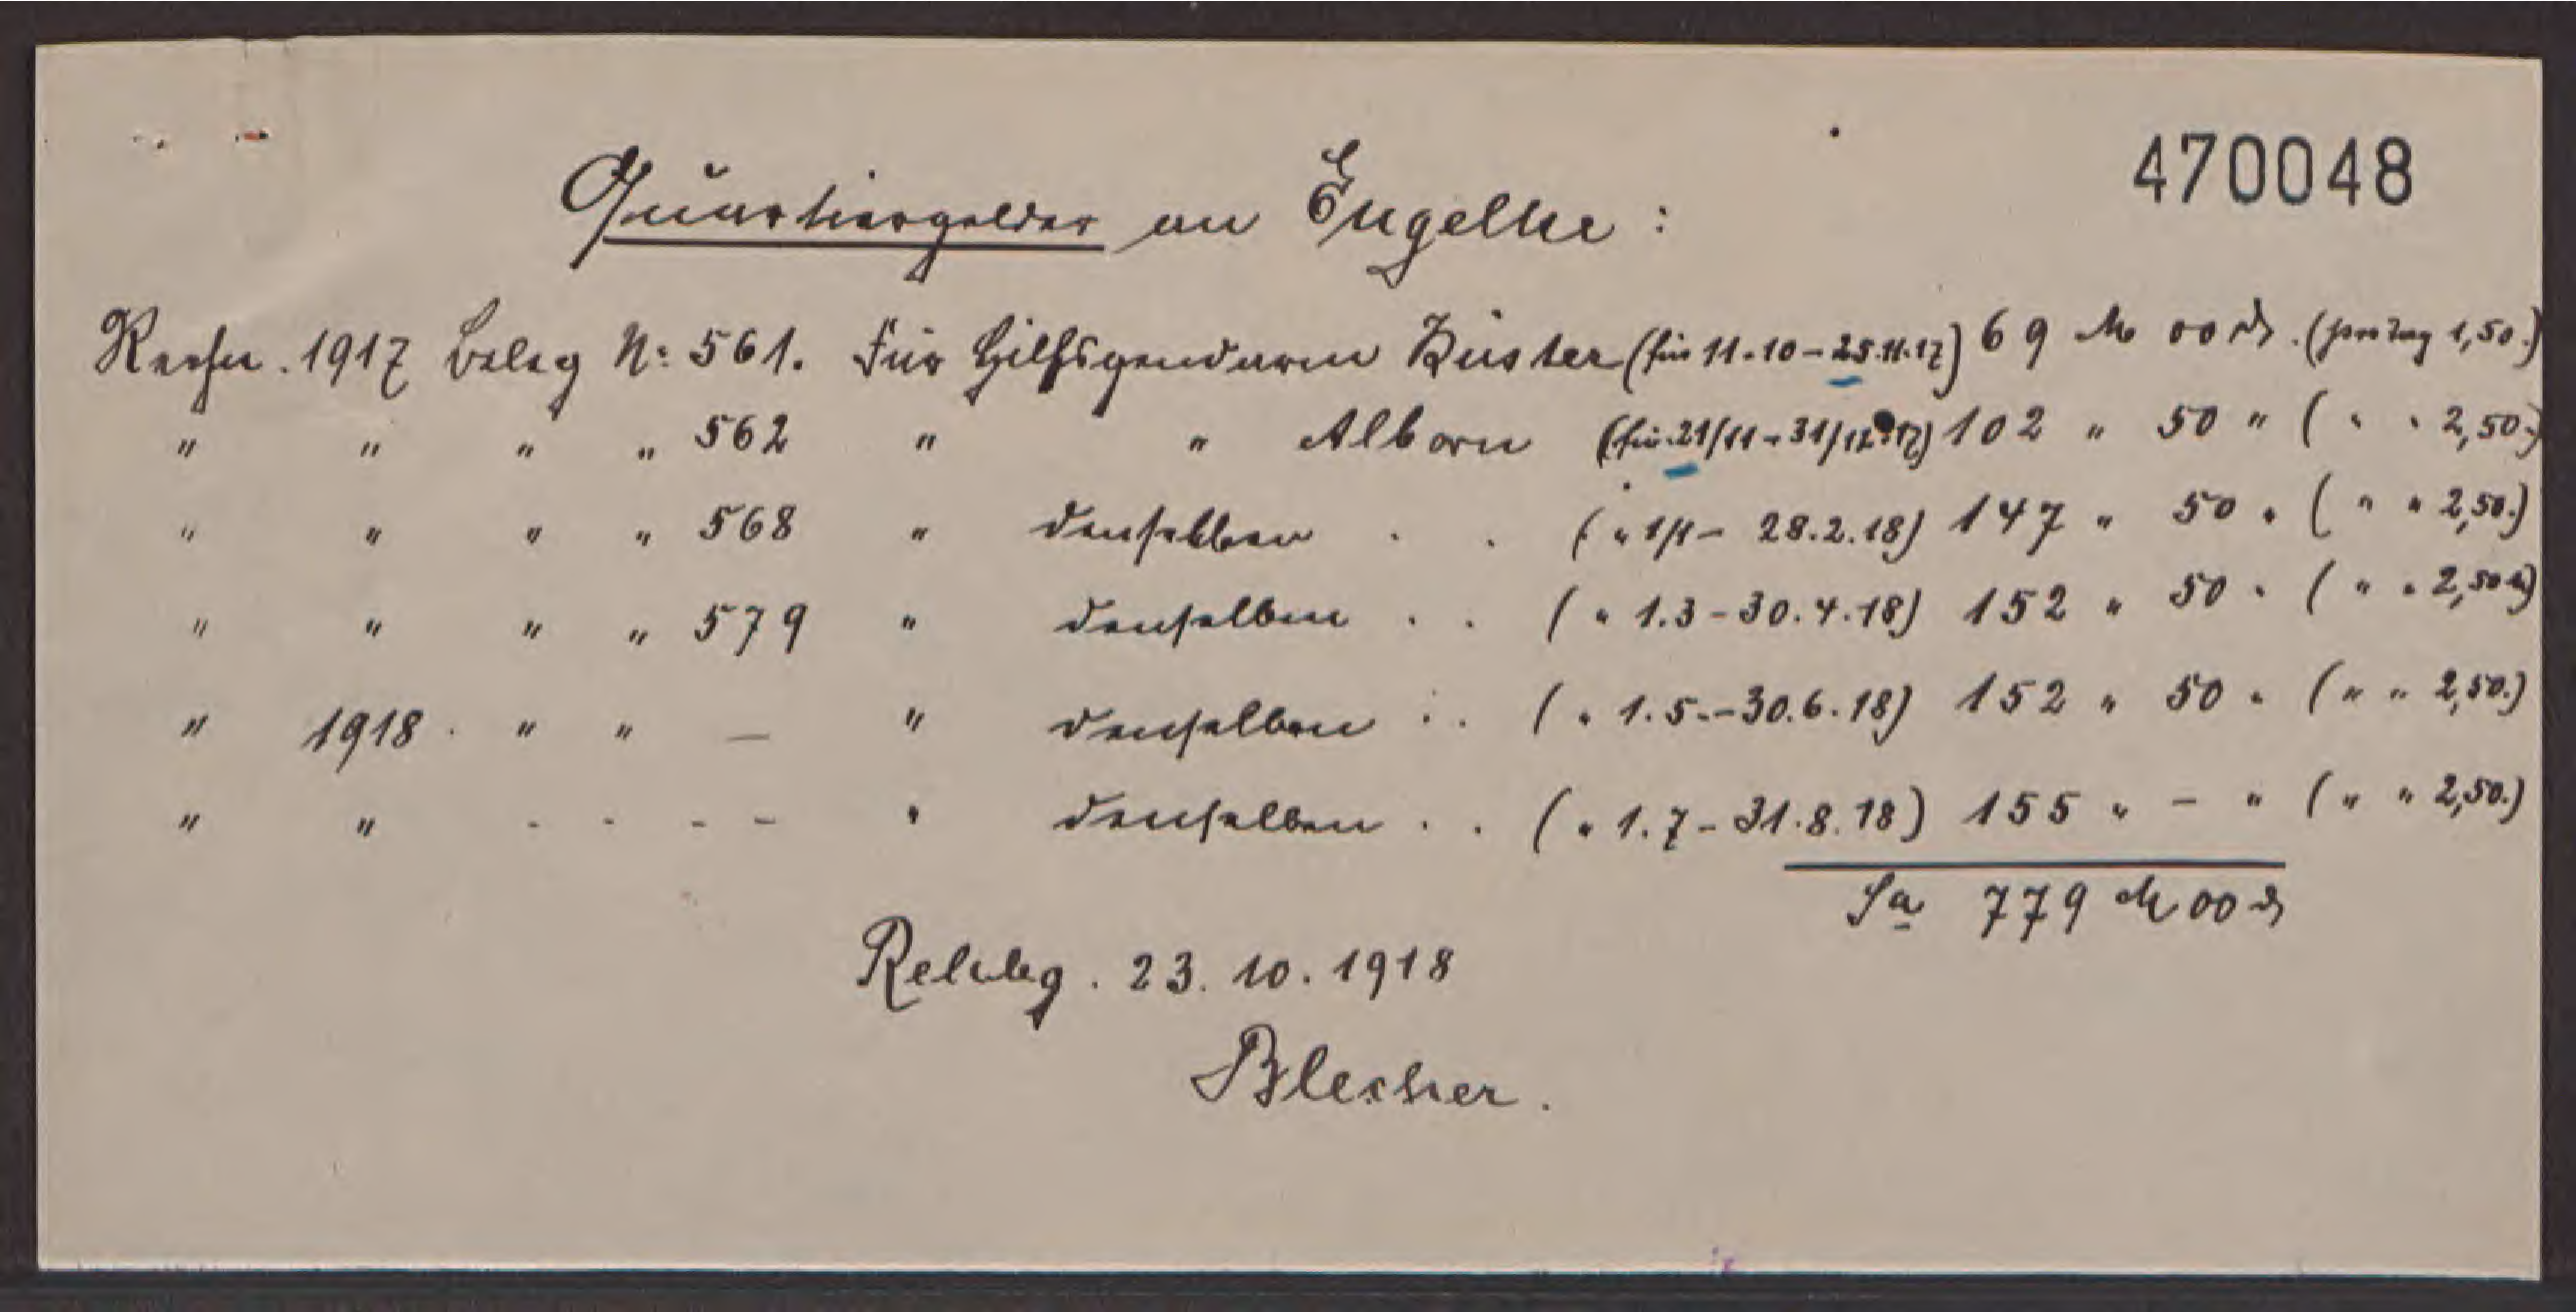 470048
Quartiergelder an Engelke:
Rechn. 1917 Beleg No: 561. Für Hilfsgendarm Küster (für 11.10 - 25.11.17) 69 M 00 ₰. (pro Tag 1,50.)
" " " " 562 " " Alborn (für 21/11 - 31/12.17) 102 " 50 " ( " " 2,50.)
" " " " 568 " denselben . . ( " 1/1 - 28.2.18) 147 " 50 " ( " " 2,50.)
" " " " 579 " denselben . . ( " 1.3 - 30.4.18) 152 " 50 " ( " " 2,50 M)
" 1918. " " — " denselben . . ( " 1.5. - 30.6.18) 152 " 50 " ( " " 2,50.)
" " - - - - " denselben . . ( " 1.7 - 31.8.18) 155 " - " ( " " 2,50.)
Sa 779 M 00 ₰
Rehbg. 23. 10. 1918
Blecher.